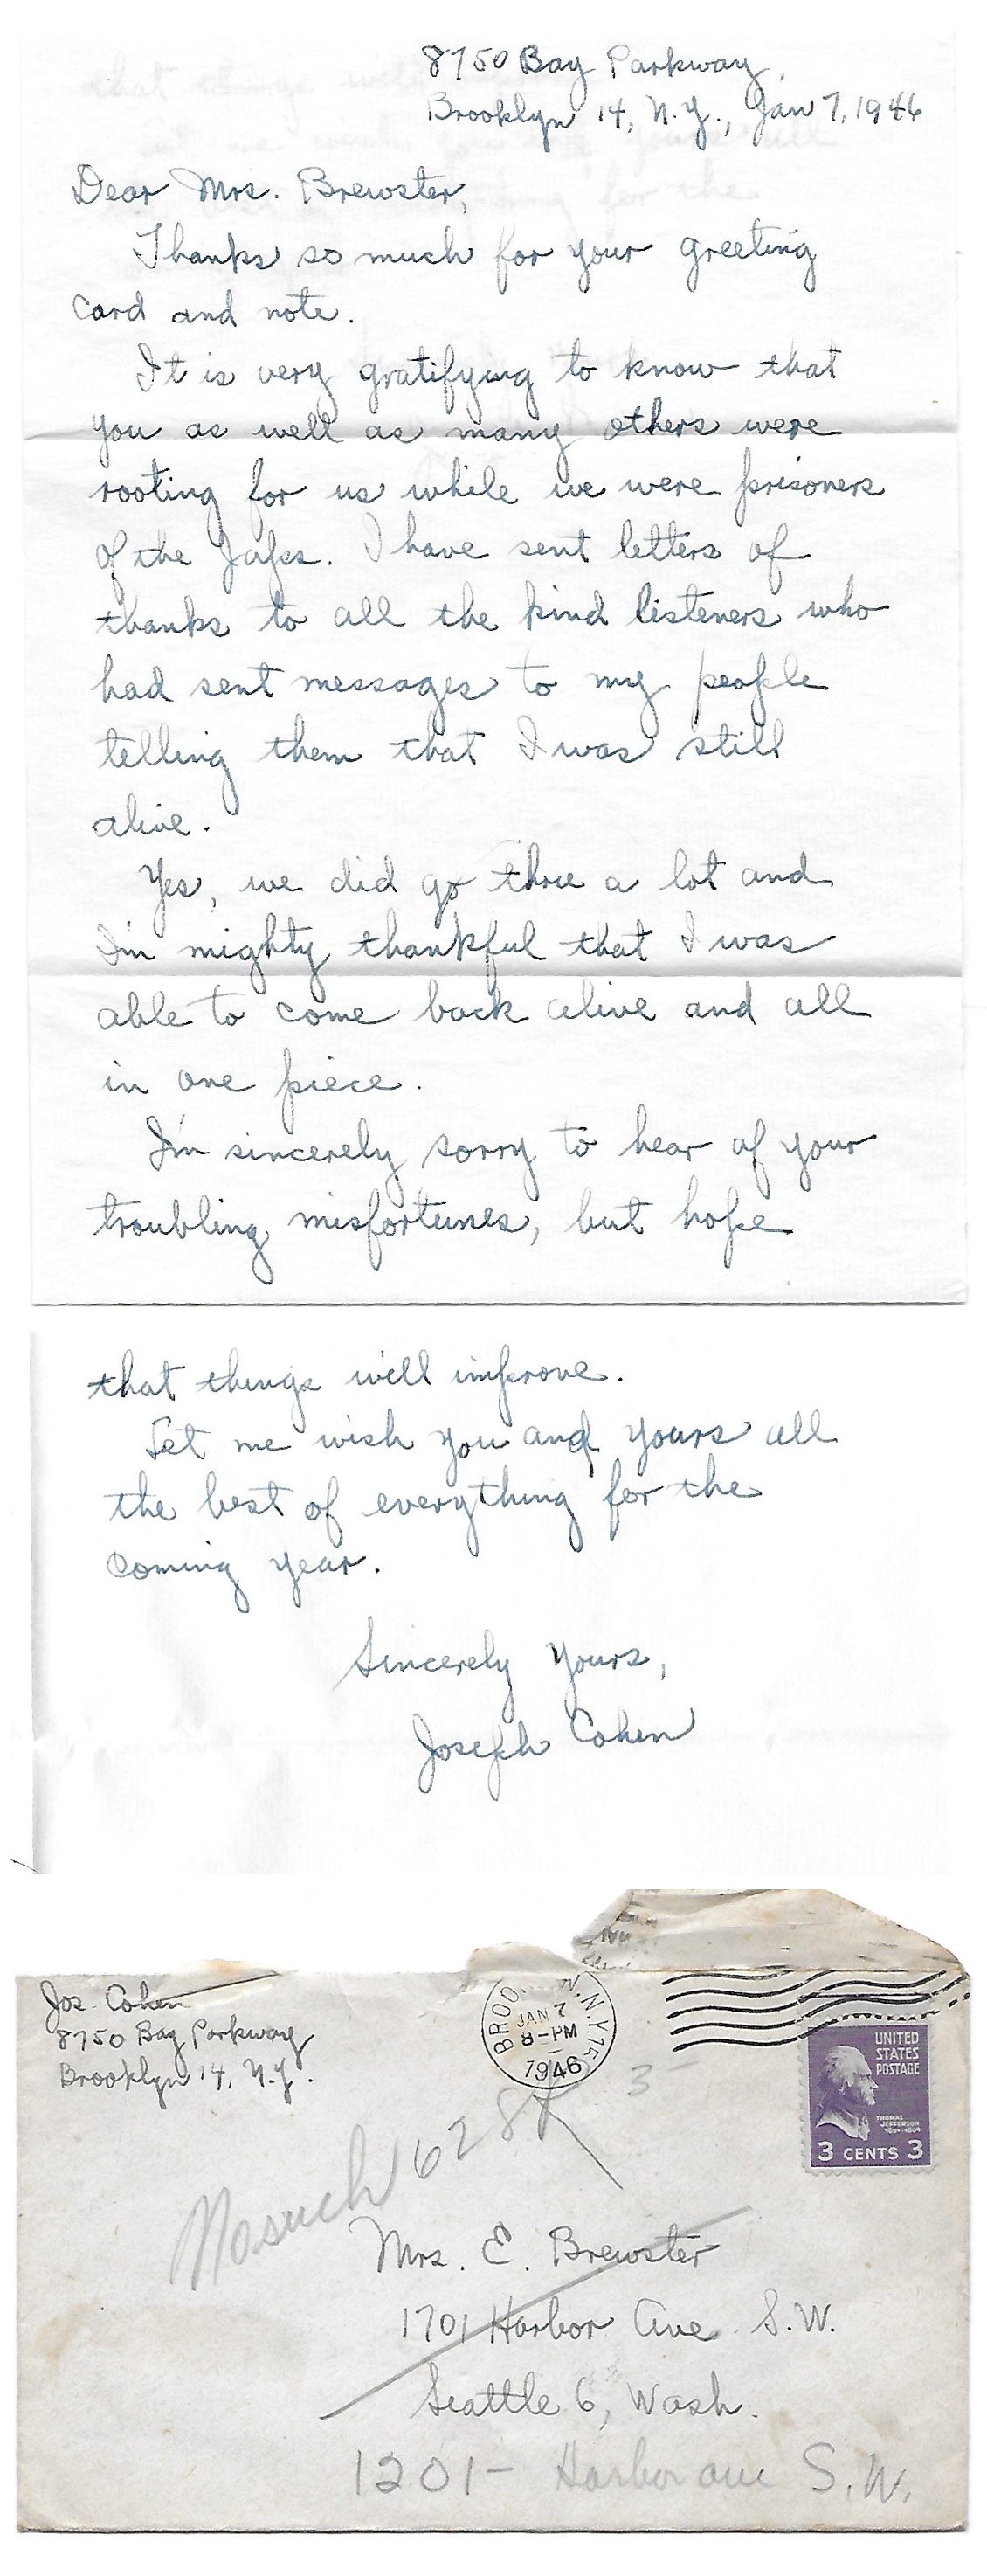 8750 Bay Parkway,
Brooklyn 14, N.Y., Jan 7, 1946
Dear Mrs. Brewster,
Thanks so much for your greeting
card and note.
It is very gratifying to know that
you as well as many others were
rooting for us while we were prisoners
of the Japs. I have sent letters of
thanks to all the kind listeners who
had sent messages to my people
telling them that I was still
alive.
Yes, we did go thru a lot and
I'm mighty thankful that I was
able to come back alive and all
in one piece.
I'm sincerely sorry to hear of your
troubling misfortunes, but hope
that things will improve.
Let me wish you and yours all
the best of everything for the
coming year.
Sincerely Yours,
Joseph Cohen
Jos. Cohen
8750 Bay Parkway
Brooklyn 14, N.Y.
JAN 7
8-PM
1946
UNITED
STATES
POSTAGE
THOMAS
JEFFERSON
3 CENTS 3
3
No such 628
Mrs. E. Brewster
1701 Harbor Ave S.W.
Seattle 6, Wash.
1201- Harbor ave S.W.